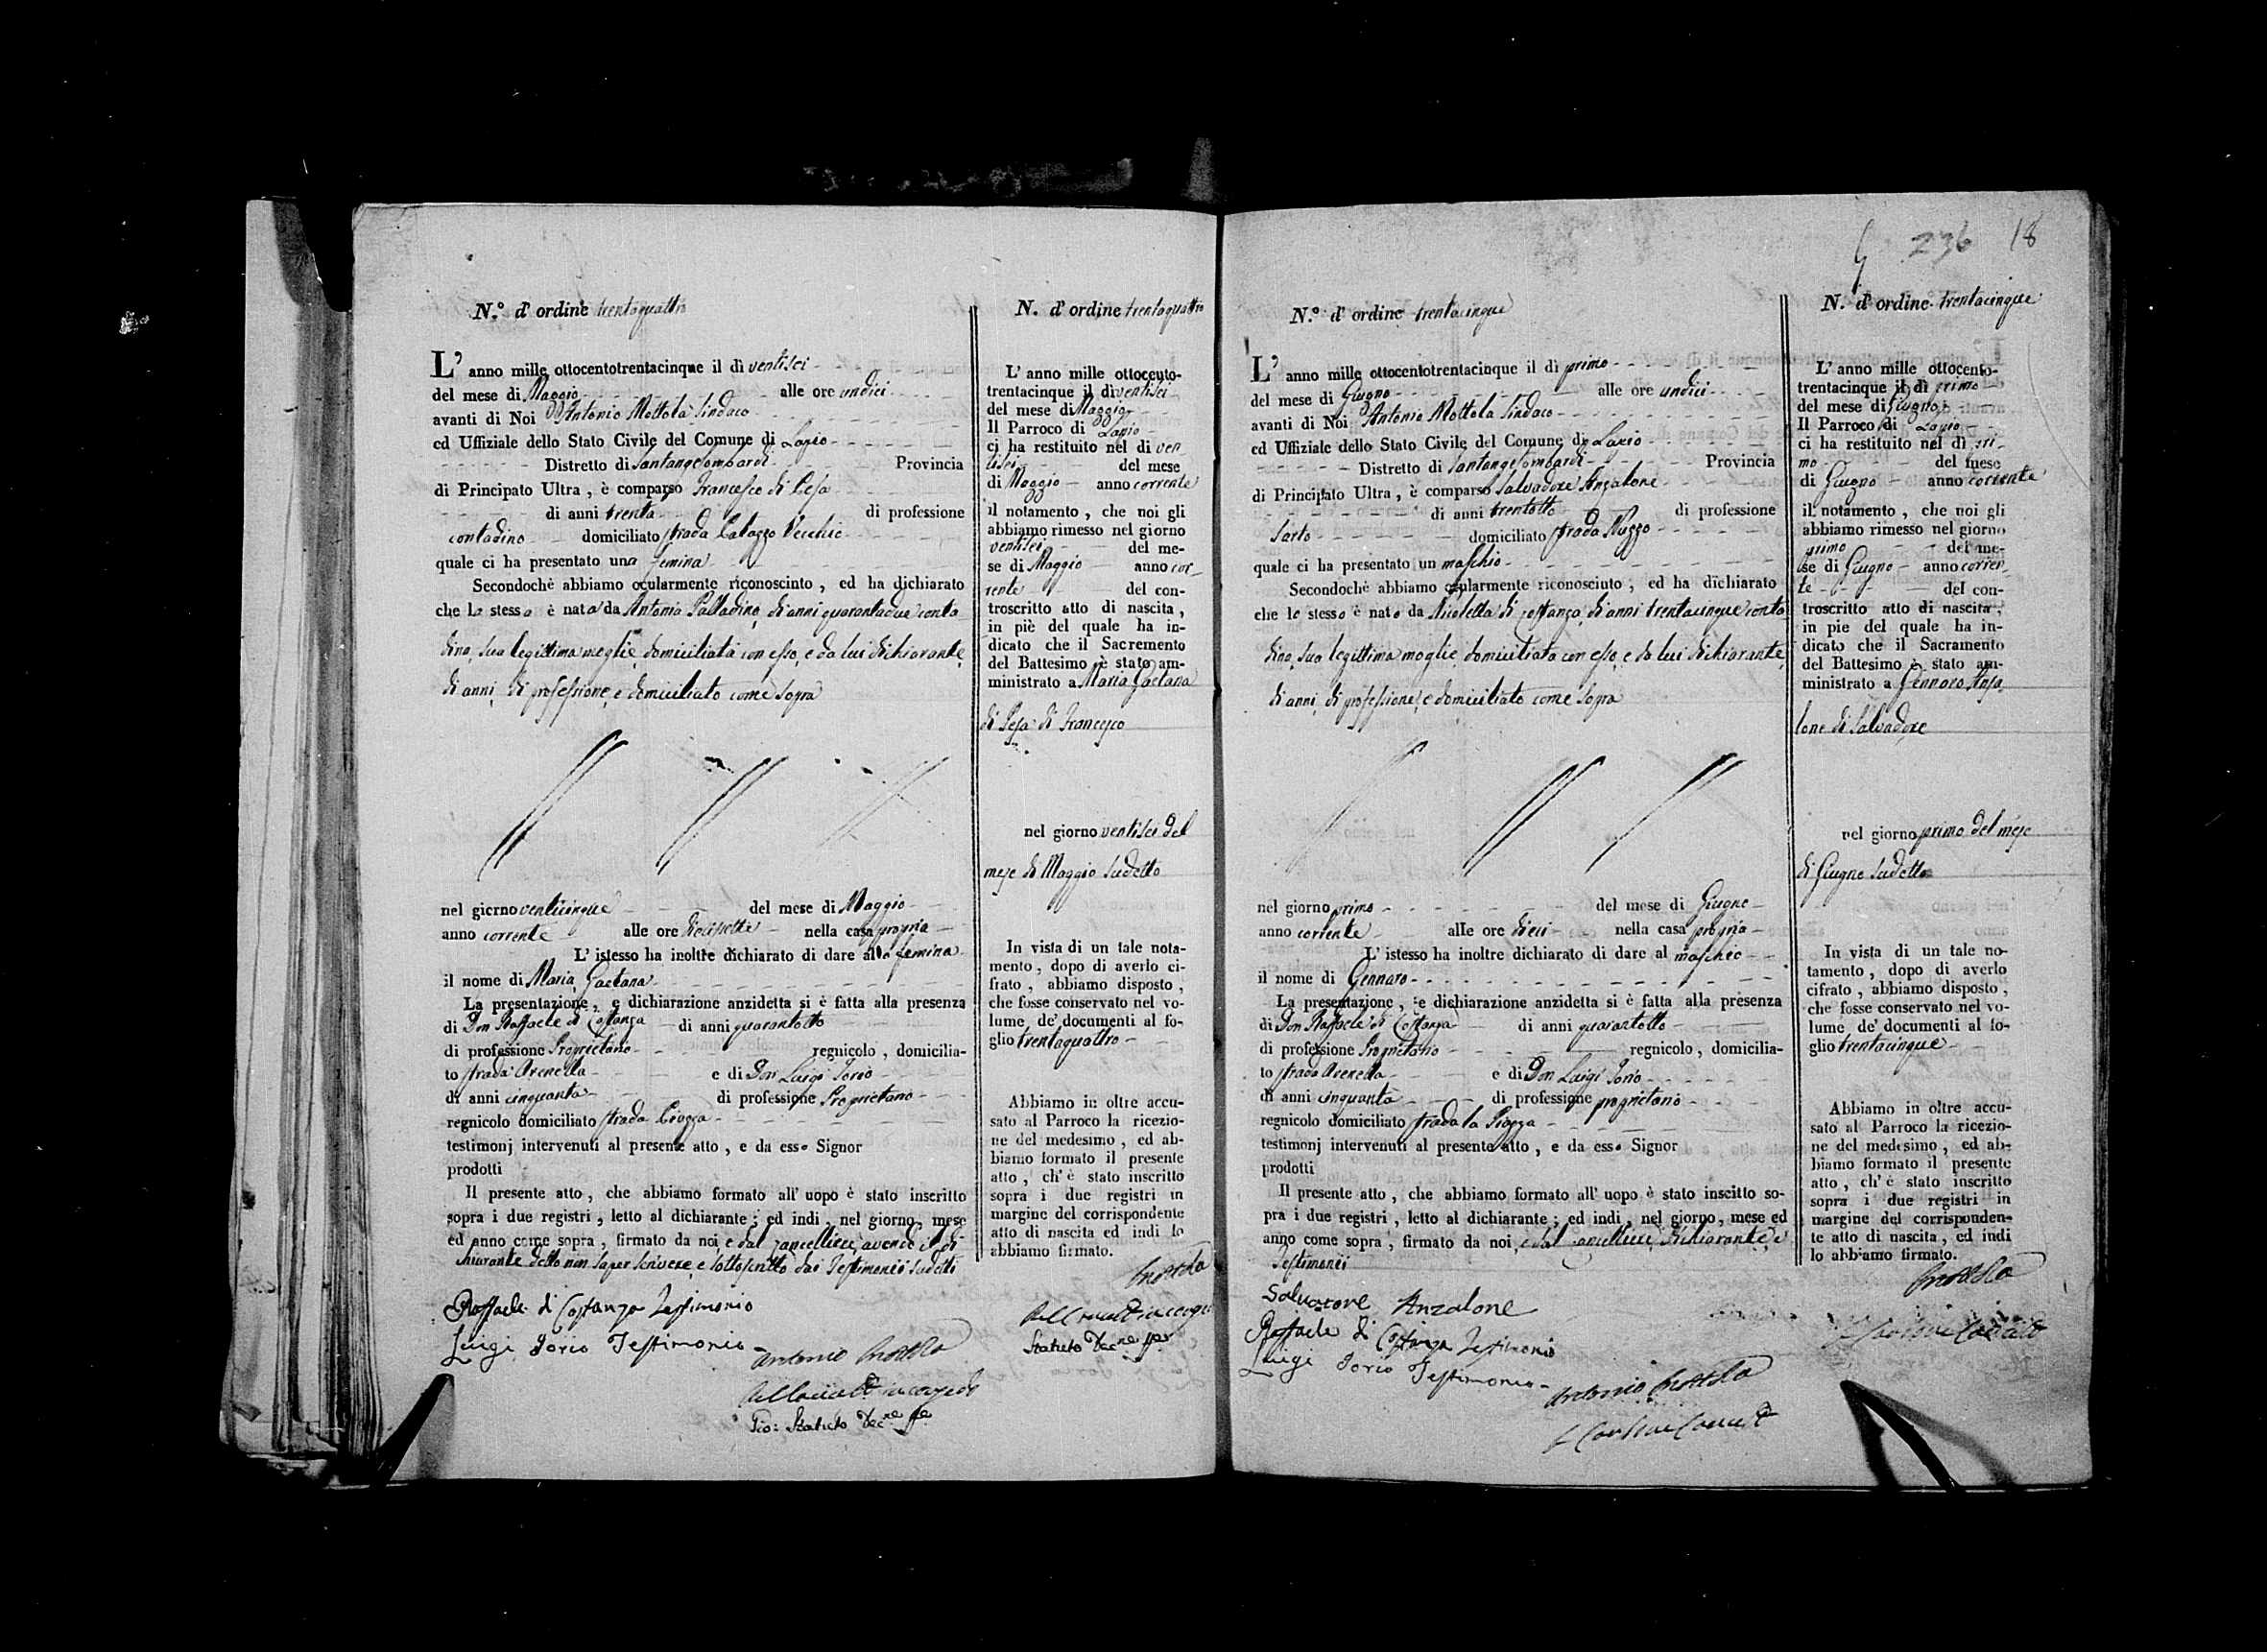 N.º d' ordine trentaquattro
L' anno mille ottocentotrentacinque il dì ventisei
del mese di Maggio alle ore undici
avanti di Noi D. Antonio Mottola Sindaco
ed Uffiziale dello Stato Civile del Comune di Lapio
Distretto di Santangelombardi Provincia
di Principato Ultra, è comparso Francesco di Pesa
di anni trenta di professione
contadino domiciliato strada Palazzo Vecchio
quale ci ha presentato una femina
Secondochè abbiamo ocularmente riconosciuto, ed ha dichiarato
che la stessa è nata da Antonia Palladino, di anni quarantadue conta
dina, sua legittima moglie, domiciliata con esso, e da lui dichiarante,
di anni, di professione, e domiciliato come sopra
nel giorno venticinque del mese di Maggio
anno corrente alle ore diecisette nella casa propria
L' istesso ha inoltre dichiarato di dare alla femina
il nome di Maria Gaetana
La presentazione, e dichiarazione anzidetta si è fatta alla presenza
di Don Raffaele di Costanza di anni quarantotto
di professione Proprietario regnicolo, domicilia-
to strada Arenella e di Don Luigi Iorio
di anni cinquanta di professione Proprietario
regnicolo domiciliato strada Piazza
testimonj intervenuti al presente atto, e da esso Signor
prodotti
Il presente atto, che abbiamo formato all' uopo è stato inscritto
sopra i due registri, letto al dichiarante; ed indi, nel giorno, mese
ed anno come sopra, firmato da noi, e dal Cancelliere, avendo il di-
chiarante detto non saper scrivere, e sottoscritto dai Testimonii sudetti
Raffaele di Costanza Testimonio
Luigi Iorio Testimonio
Antonio Mottola
Gio: Statuto
N. d' ordine trentaquattro
L' anno mille ottocento-
trentacinque il dì ventisei
del mese di Maggio
Il Parroco di Lapio
ci ha restituito nel di ven
tisei del mese
di Maggio anno corrente
il notamento, che noi gli
abbiamo rimesso nel giorno
ventisei del me-
se di Maggio anno cor-
rente del con-
troscritto atto di nascita,
in piè del quale ha in-
dicato che il Sacremento
del Battesimo è stato am-
ministrato a Maria Gaetana
di Pesa di Francesco
nel giorno ventisei del
mese di Maggio sudetto
In vista di un tale nota-
mento, dopo di averlo ci-
frato, abbiamo disposto,
che fosse conservato nel vo-
lume de' documenti al fo-
glio trentaquattro
Abbiamo in oltre accu-
sato al Parroco la ricezio-
ne del medesimo, ed ab-
biamo formato il presente
atto, ch' è stato inscritto
sopra i due registri in
margine del corrispondente
atto di nascita ed indi lo
abbiamo firmato.
Mottola
Statuto
236 18
N.º d' ordine trentacinque
L' anno mille ottocentotrentacinque il dì primo
del mese di Giugno alle ore undici
avanti di Noi D. Antonio Mottola Sindaco
ed Uffiziale dello Stato Civile del Comune di Lapio
Distretto di Santangelombardi Provincia
di Principato Ultra, è comparso Salvadore Anzalone
di anni trentotto di professione
Sarto domiciliato strada Puzzo
quale ci ha presentato un maschio
Secondochè abbiamo ocularmente riconosciuto, ed ha dichiarato
che lo stesso è nato da Nicoletta di Costanza, di anni trentacinque conta
dina, sua legittima moglie, domiciliata con esso, e da lui dichiarante,
di anni, di professione, e domiciliato come sopra
nel giorno primo del mese di Giugno
anno corrente alle ore dieci nella casa propria
L' istesso ha inoltre dichiarato di dare al maschio
il nome di Gennaro
La presentazione, e dichiarazione anzidetta si è fatta alla presenza
di Don Raffaele di Costanza di anni quarantotto
di professione Proprietario regnicolo, domicilia-
to strada Arenella e di Don Luigi Iorio
di anni cinquanta di professione proprietario
regnicolo domiciliato strada la Piazza
testimonj intervenuti al presente atto, e da esso Signor
prodotti
Il presente atto, che abbiamo formato all' uopo è stato inscitto so-
pra i due registri, letto al dichiarante; ed indi, nel giorno, mese ed
anno come sopra, firmato da noi, e dal Cancelliere, dichiarante, e
Testimonii
Salvatore Anzalone
Raffaele di Costanza Testimonio
Luigi Iorio Testimonio
Antonio Mottola
N. d' ordine trentacinque
L' anno mille ottocento-
trentacinque il di primo
del mese di Giugno
Il Parroco di Lapio
ci ha restituito nel di pri-
mo del mese
di Giugno anno corrente
il notamento, che noi gli
abbiamo rimesso nel giorno
primo del me-
se di Giugno anno corren-
te del con-
troscritto atto di nascita,
in pie del quale ha in-
dicato che il Sacramento
del Battesimo è stato am-
ministrato a Gennaro Anza
lone di Salvadore
nel giorno primo del mese
di Giugno sudetto
In vista di un tale no-
tamento, dopo di averlo
cifrato, abbiamo disposto,
che fosse conservato nel vo-
lume de' documenti al fo-
glio trentacinque
Abbiamo in oltre accu-
sato al Parroco la ricezio-
ne del medesimo, ed ab-
biamo formato il presente
atto, ch' è stato inscritto
sopra i due registri in
margine del corrisponden-
te atto di nascita, ed indi
lo abbiamo firmato.
Mottola